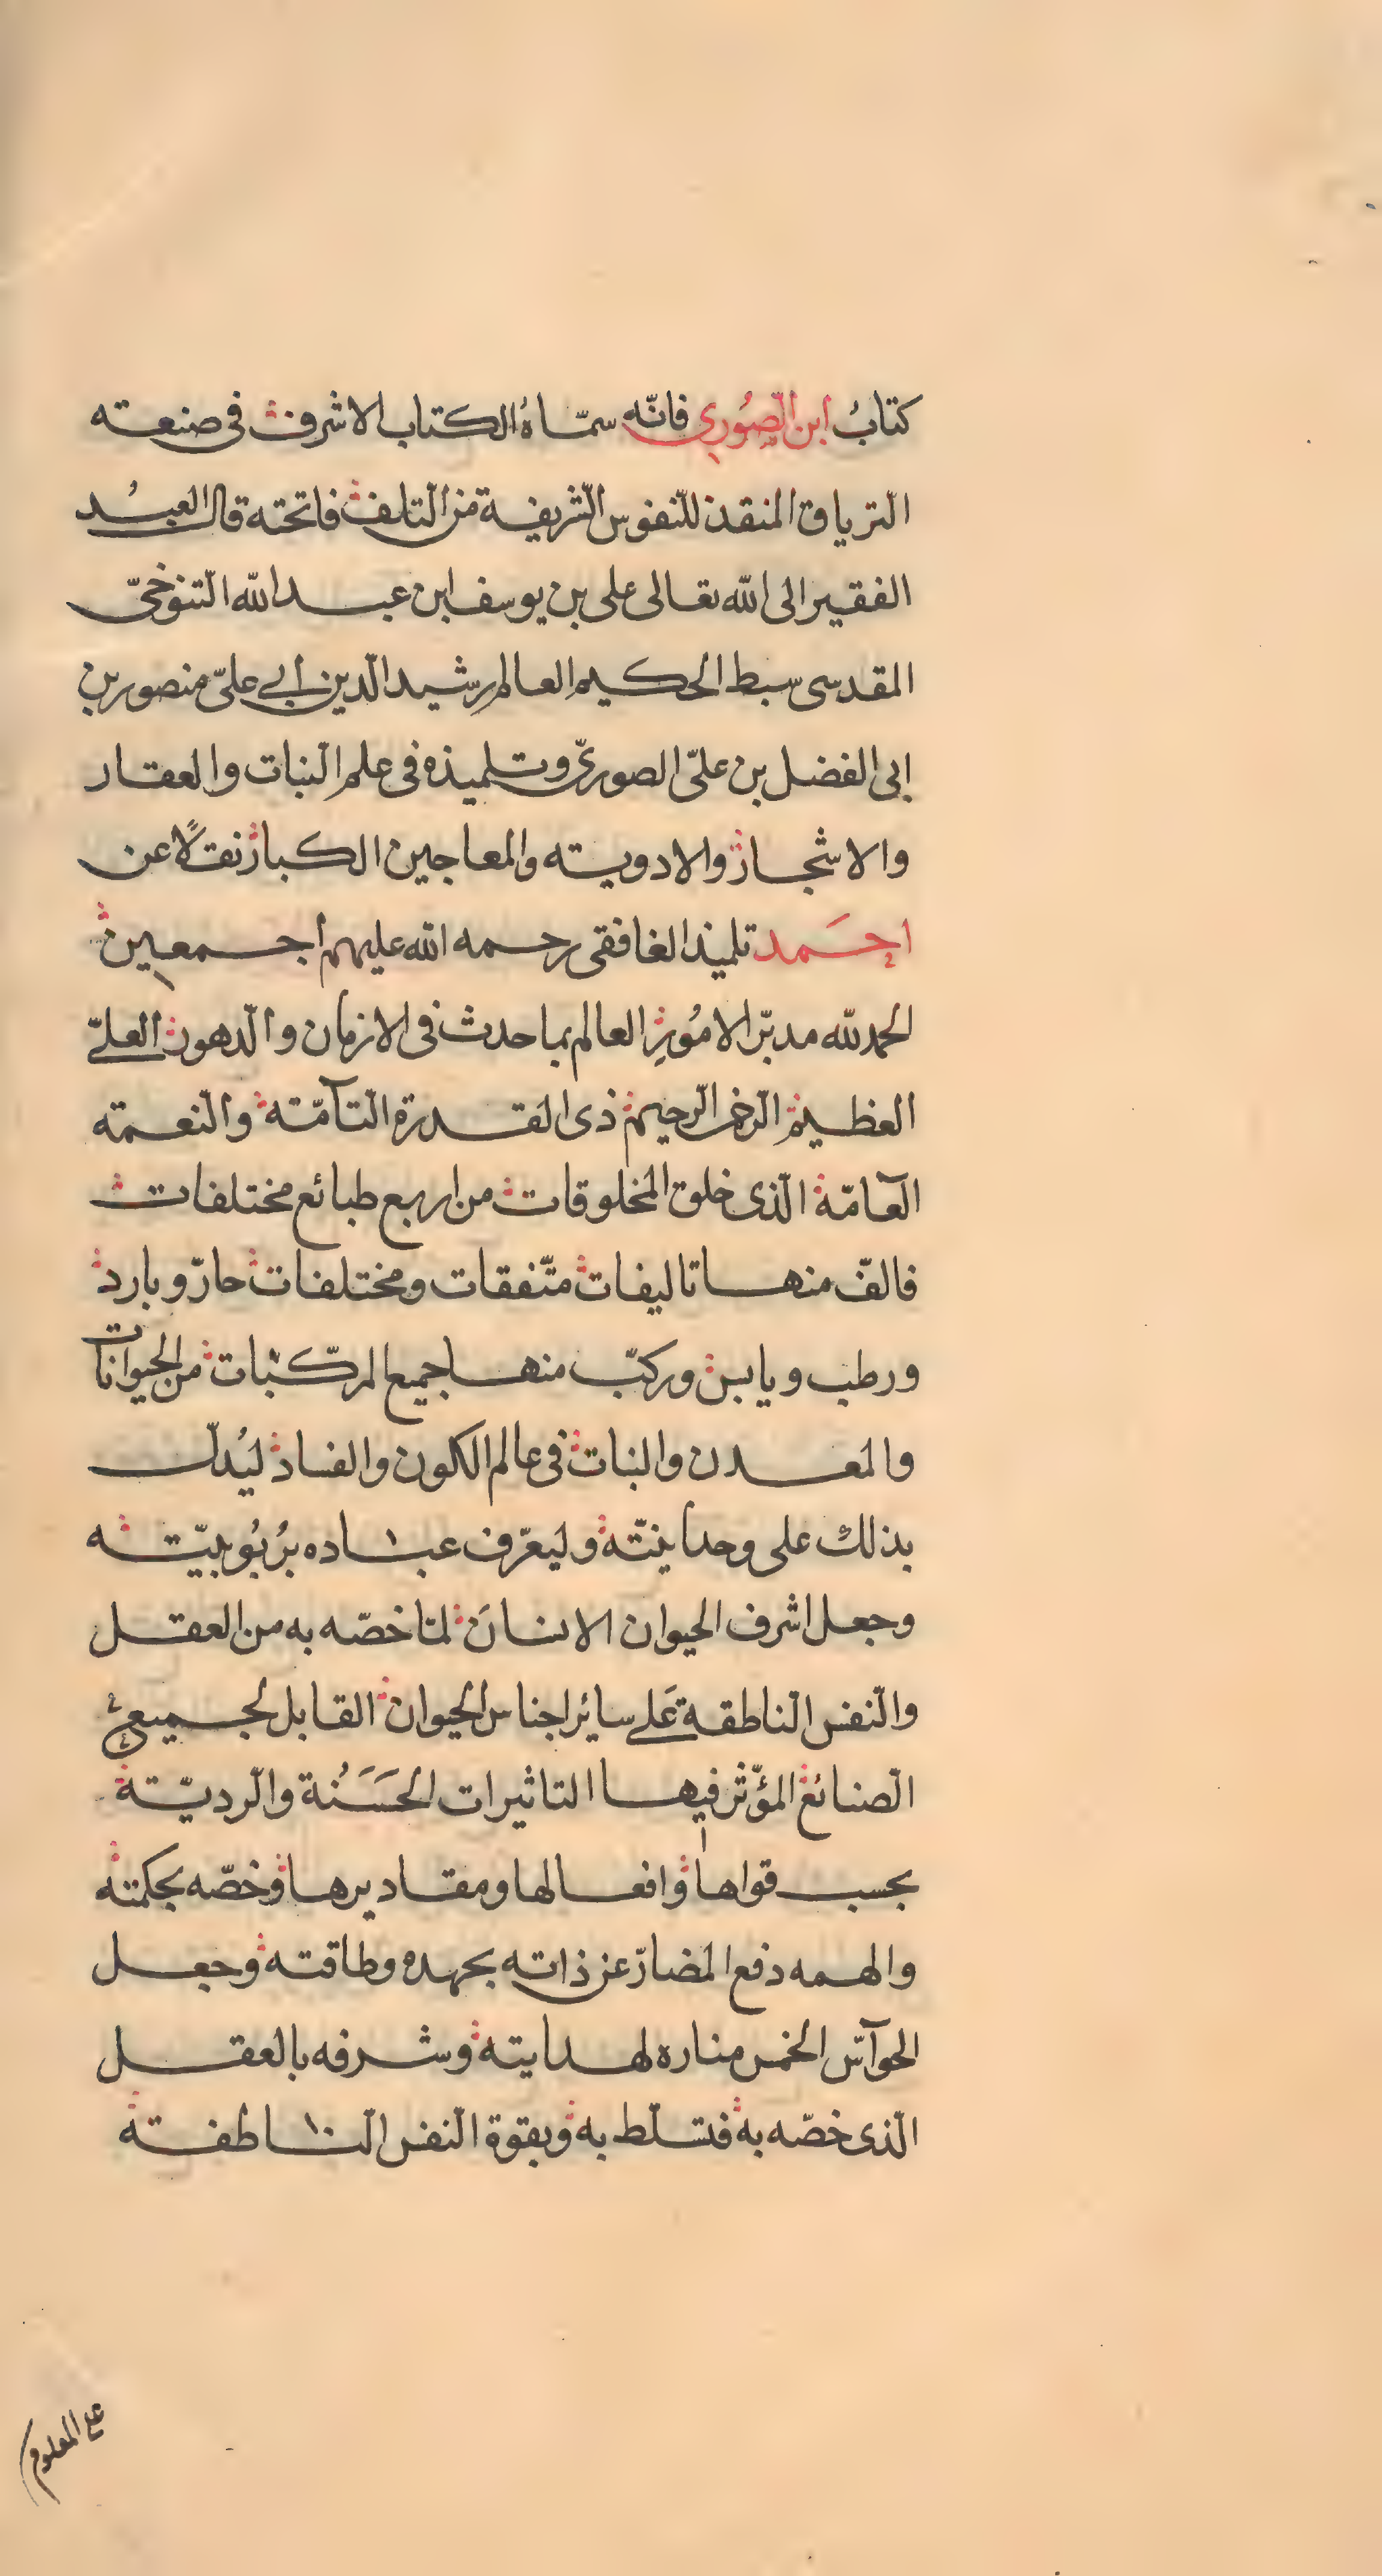 كتابُ ابن الصُوري فانّه سمّاهُ الكتاب الاشرف فى صنعته
الترياق المنقذ للنفوس الشريفة من التلف فاتحته قال العبُد
الفقير الى الله تعالى على بن يوسف ابن عبد الله التنوخىّ
المقدسى سبط الحكيم العالم رشيد الدين أبي علىّ منصور بن
ابى الفضل بن علىّ الصورىّ وتلميذه فى علم النبات والعقار
والاشجار والادويته والمعاجين الكبار نقلاً عن
احَمد تلميذ الغافقى رحمه الله عليهم أجمعين
الحمد لله مدبّر الامُورِ العالم بما حدث فى الازمان والدهور العلىّ
العظيم الرحمن الرحيم ذى القدرة التآمّته والنعمته
العآمّة الّذى خلق المخلوقات من اربع طبائع مختلفات
فالفّ منها تاليفات متّفقات ومختلفات حارّ وبارد
ورطب ويابس وركبّ منها جميع المركّبات من الحيوانات
والمعدن والنبات فى عالم الكون والفساد ليُدلّ
بذلك على وحدانيتّه وليعرّف عباده برُبُوبيّته
وجعل اشرف الحيوان الانسانَ لمّا خصّه به من العقل
والنفس الناطقة عَلى سائر اجناس الحيوان القابل لجميع
الصنائع المؤثّر فيها التاثيرات الحَسَنُة والرديّتة
بحسب قواها وافعالها ومقاديرها وخصّه بحكمته
والهمه دفع المضارّ عن ذاته بجهده وطاقته وجعل
الحوآسّ الخمس مناره لهدايته وشرفه بالعقل
الّذى خصّه به فتسلّط به وبقوة النفس الناطفته
على المعلوم